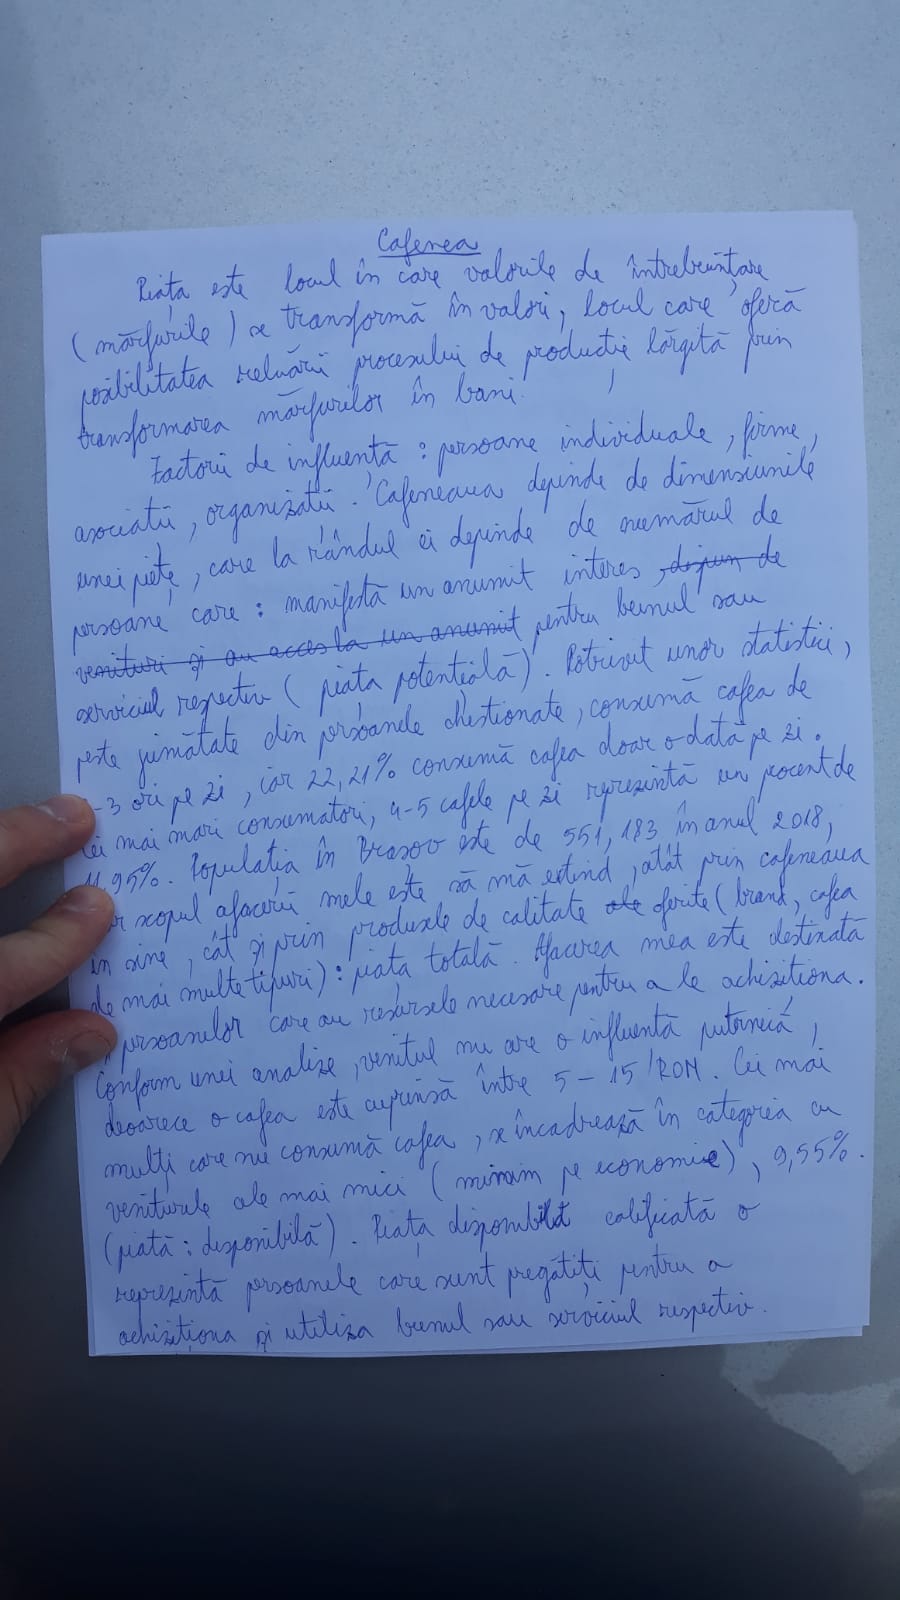 Cafenea
Piața este locul în care valorile de întrebuințare
(mărfurile) se transformă în valori, locul care oferă
posibilitatea reluării procesului de producție lărgită prin
transformarea mărfurilor în bani.
Factorii de influență : persoane individuale, firme,
asociații, organizații. Cafeneaua depinde de dimensiunile
unei piețe, care la rândul ei depinde de numărul de
persoane care : manifestă un anumit interes, dispun de
venituri și au acces la un anumit pentru bunul sau
serviciul respectiv (piața potențială). Potrivit unor statistici,
peste jumătate din persoanele chestionate, consumă cafea de
-3 ori pe zi, iar 22,21% consumă cafea doar o dată pe zi.
Cei mai mari consumatori, 4-5 cafele pe zi reprezintă un procent de
,95%. Populația în Brașov este de 551,183 în anul 2018,
scopul afacerii mele este să mă extind, atât prin cafeneaua
în sine, cât și prin produsele de calitate ale oferite (brand, cafea
de mai multe tipuri) : piața totală. Afacerea mea este destinată
persoanelor care au resursele necesare pentru a le achiziționa.
Conform unei analize, venitul nu are o influență puternică,
deoarece o cafea este cuprinsă între 5-15 RON. Cei mai
mulți care nu consumă cafea, se încadrează în categoria cu
veniturile ale mai mici (minim pe economie), 9,55%.
(piață : disponibilă). Piața disponibilă calificată o
reprezintă persoanele care sunt pregătiți pentru a
achiziționa și utiliza bunul sau serviciul respectiv.